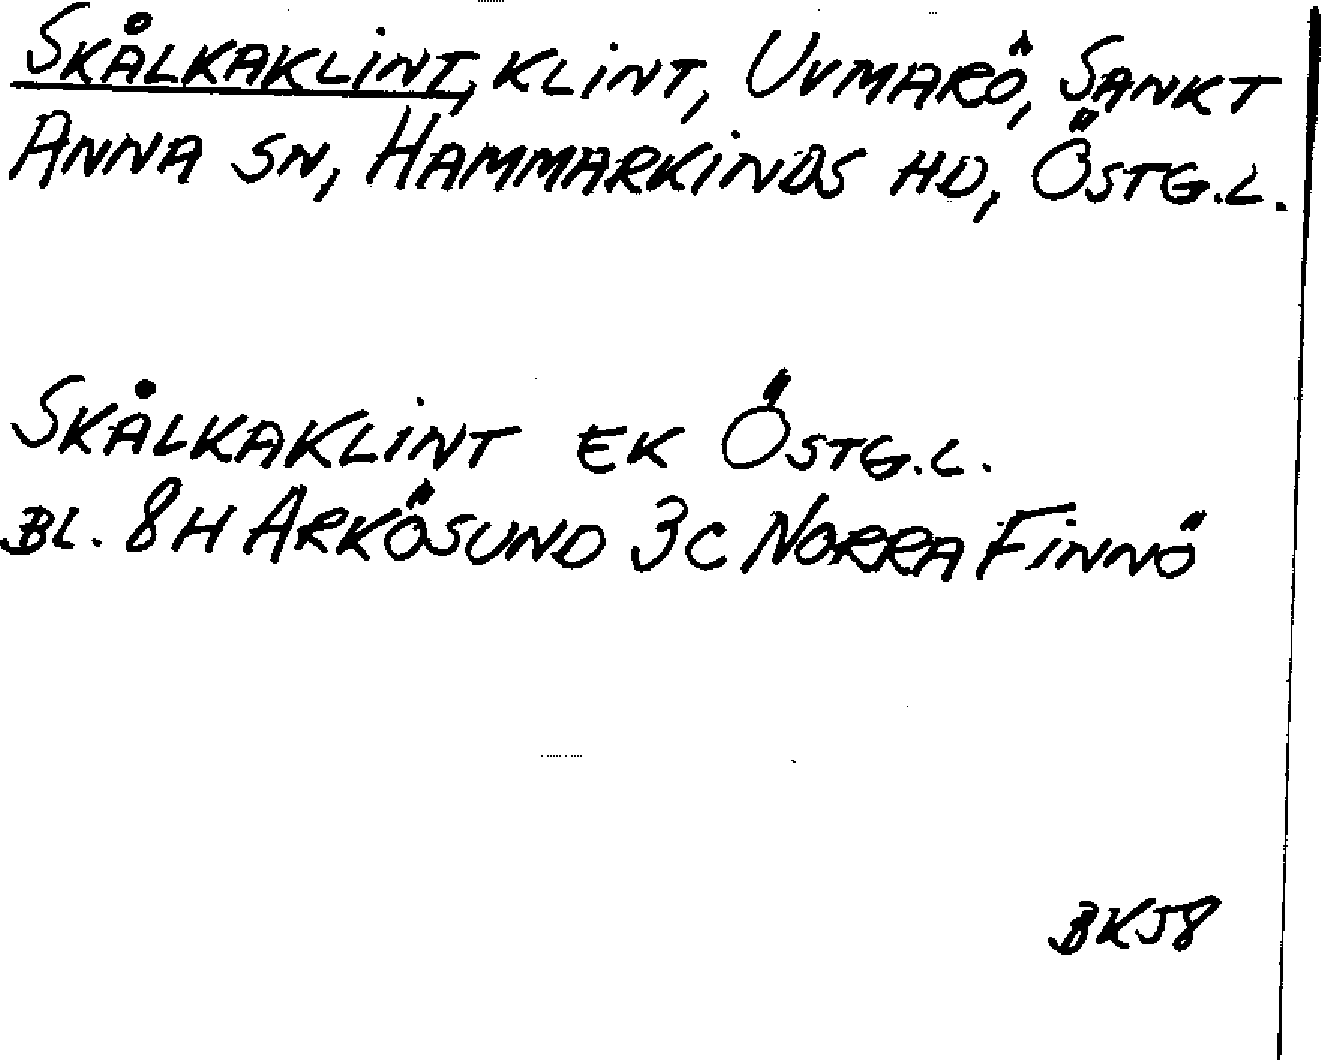 SKÅLKAKLINT, KLINT, UVMARÖ, SANKT
ANNA SN, HAMMARKINDS HD, ÖSTG.L.
SKÅLKAKLINT EK ÖSTG.L.
BL. 8H ARKÖSUND 3C NORRA FINNÖ
BK58